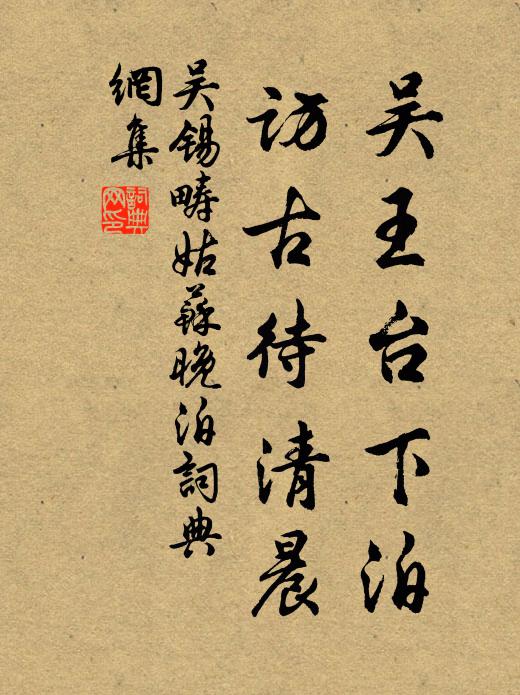 吴王台下泊
访古待清晨
吴锡畴姑蘇晚泊詞典
網集
詞典網印